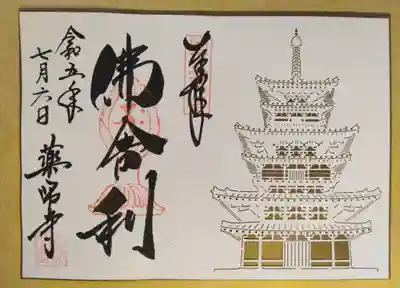 奉拝
佛舎利
令和五年
七月六日
薬師寺